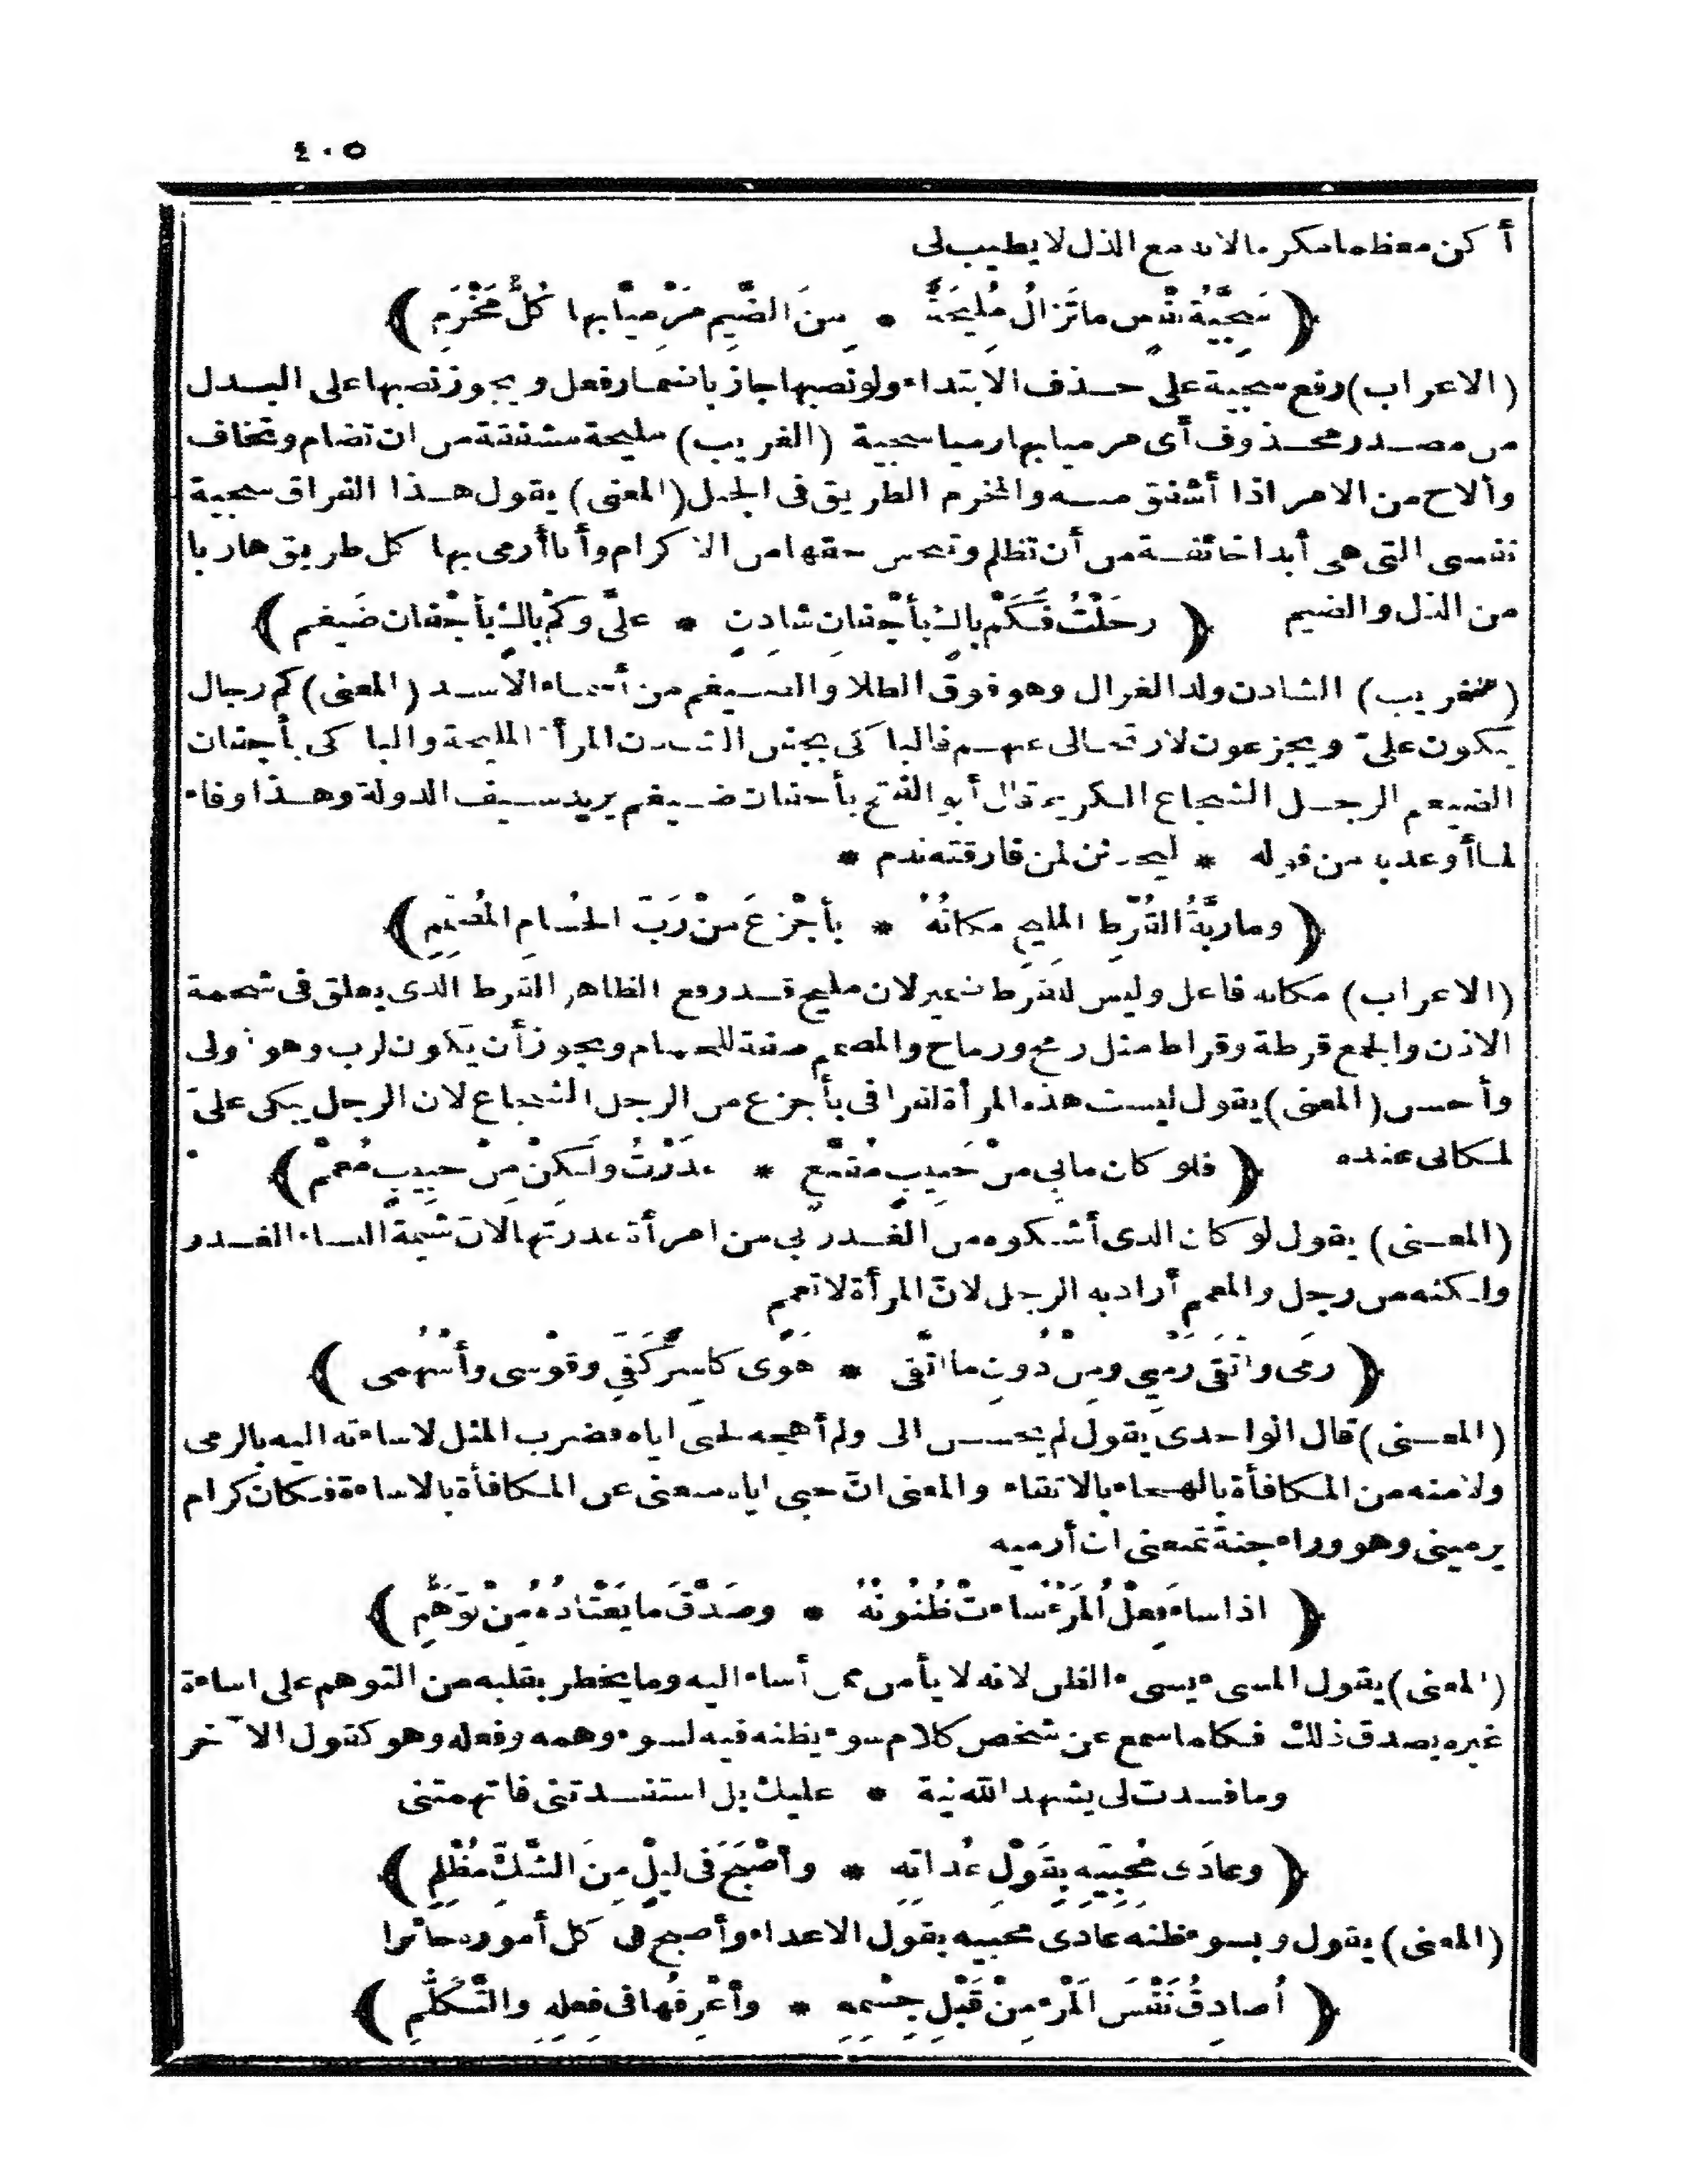 ٤٠٥
أكن معظما مكرما لانه مع الذل لا يطيب لى
﴿ سَجِيَّةُ نَفْسٍ ما تَزالُ مُلِيحَةً * مِنَ الضَّيمِ مَرْمِيًّا بها كُلُّ مَخْرَمِ ﴾
(الاعراب) رفع سجية على حذف الابتداء ولو نصبها جاز باضمار فعل ويجوز نصبها على البدل
من مصدر محذوف أى مرميا بها رميا سجية (الغريب) مليحة مشفقة من ان تضام وتخاف
وألاح من الامر اذا أشفق منه والمخرم الطريق فى الجبل (المعنى) يقول هذا الفراق سجية
نفسى التى هى أبدا خائفة من أن تظلم وتبخس حقها من الاكرام وأنا أرمى بها كل طريق هاربا
من الذل والضيم ﴿ رحَلْتُ فَكَمْ باكٍ بأجْفانِ شادِنٍ * علىَّ وكَمْ باكٍ بأجْفان ضَيغم ﴾
(الغريب) الشادن ولد الغزال وهو فوق الطلا والضيغم من أسماء الاسد (المعنى) كم رجال
يبكون علىّ ويجزعون لارتحالى عنهم فالباكى بجفن الشادن المرأة المليحة والباكى بأجفان
الضيغم الرجل الشجاع الكريم قال أبو الفتح بأجفان ضيغم يريد سيف الدولة وهذا وفاء
لما أوعد به من قوله * ليحدثن لمن فارقته ندم *
﴿ وما ربَّةُ القُرْطِ المليحِ مكانُهُ * بأجْزَعَ مِنْ رَبّ الحُسامِ المُصَمِّمِ ﴾
(الاعراب) مكانه فاعل وليس للقرط ضمير لان مليح قد رفع الظاهر القرط الذى يعلق فى شحمة
الاذن والجمع قرطة وقراط مثل رمح ورماح والمصمم صفة للحسام ويجوز أن يكون لرب وهو أولى
وأحسن (المعنى) يقول ليست هذه المرأة لفراقى بأجزع من الرجل الشجاع لان الرجل يبكى علىّ
لمكانى عنده ﴿ فلو كان ما بي منْ حَبيبٍ مُقنَّعٍ * عذَرْتُ ولَكِنْ مِنْ حبِيبٍ مُعمَّمْ ﴾
(المعنى) يقول لو كان الذى أشكوه من الغدر بي من امرأة عذرتها لانّ شيمة النساء الغدر
ولكنه من رجل والمعمم أراد به الرجل لانّ المرأة لا تعمم
﴿ رمَى واتَّقَى رَمْيِي ومِنْ دُونِ ما اتَّقَى * هَوًى كاسِرٌ كَفِّي وقوْسى وأسْهمى ﴾
(المعنى) قال الواحدى يقول لم يحسن الى ولم أهجه لحبى اياه فضرب المثل لاساءته اليه بالرمى
ولأمنه من المكافأة بالهجاء بالاتقاء والمعنى انّ حبى اياه منعنى عن المكافأة بالاساءة فكان كرام
يرمينى وهو وراء جنة تمنعنى ان أرميه
﴿ اذا ساءَ فِعْلُ المَرْءِ ساءتْ ظُنُونُهُ * وصَدَّقَ ما يَعْتادُهُ مِنْ تَوَهُّمِ ﴾
(المعنى) يقول المسىء يسىء الظن لانه لا يأمن ممن أساء اليه وما يخطر بقلبه من التوهم على اساءة
غيره يصدق ذلك فكلما سمع عن شخص كلام سوء يظنه فيه لسوء وهمه وفعله وهو كقول الآخر
وما فسدت لى يشهد الله نية * عليك بل استفسدتنى فاتهمتنى
﴿ وعادَى مُحِبِّيهِ بِقَوْلِ عُداتِهِ * وأصْبَحَ فى ليلٍ مِنَ الشَّكّ مُظْلِمِ ﴾
(المعنى) يقول وبسوء ظنه عادى محبيه بقول الاعداء وأصبح فى كل أموره حائرا
﴿ أُصادِقُ نَفْسَ المَرْءِ مِنْ قَبْلِ جِسْمِهِ * وأعْرِفُها فى فِعلِهِ والتَّكَلُّمِ ﴾